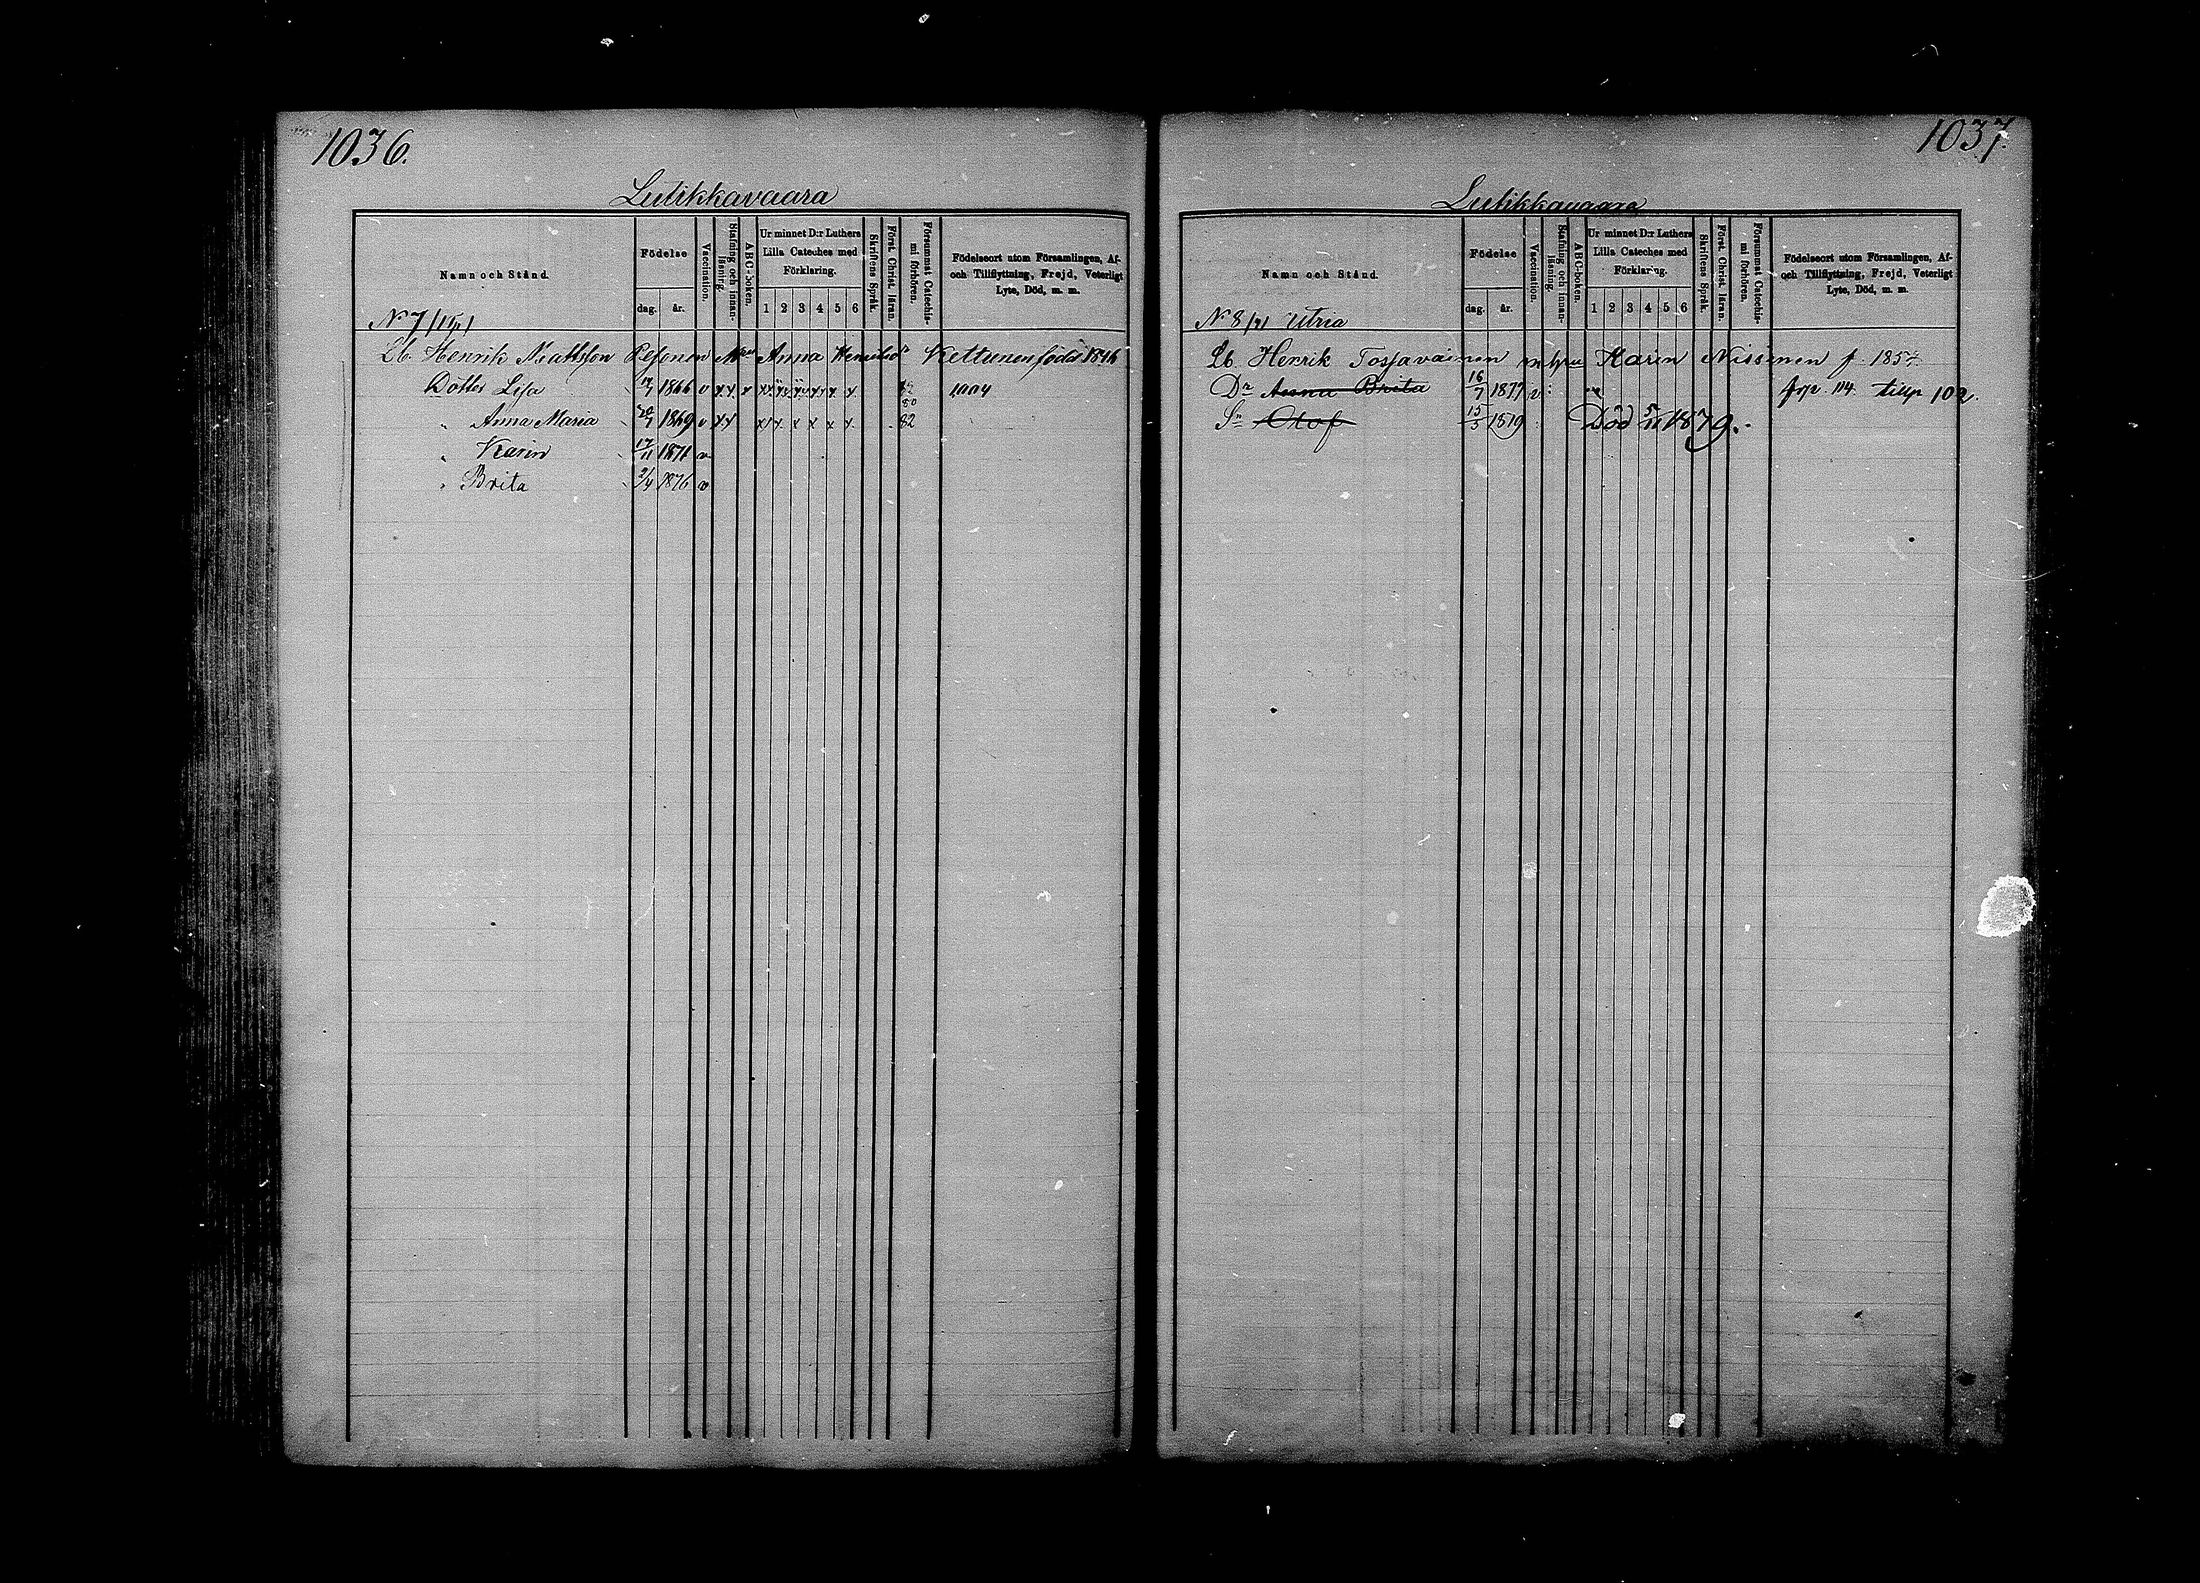 1036.
Lutikkavaara
Namn och Stånd.
Födelse
dag. år.
Vaccination.
Stafning och innanläsning.
ABC-boken.
Ur minnet D:r Luthers Lilla Cateches med Förklaring.
1 2 3 4 5 6
Skriftens Språk.
Först. Christ. läran.
Försummat Catechismi förhören.
Födelseort utom Församlingen, Af- och Tillflyttning, Frejd, Veterligt Lyte, Död, m. m.
N 7
Lb. Henrik Mattsson Pesonen Anna Kettunen född 1846
Dotter Lisa 1866 v x x x x x x x x x 1004
" Anna Maria 1869 v x x x x x x x x 82
" Karin 17/11 1871 v
" Brita 2/4 1876 v
1037.
Lutikkavaara
Namn och Stånd.
Födelse
dag. år.
Vaccination.
Stafning och innanläsning.
ABC-boken.
Ur minnet D:r Luthers Lilla Cateches med Förklaring.
1 2 3 4 5 6
Skriftens Språk.
Först. Christ. läran.
Försummat Catechismi förhören.
Födelseort utom Församlingen, Af- och Tillflyttning, Frejd, Veterligt Lyte, Död, m. m.
N 8 Utria
Lb. Henrik Tossavainen m hru Karin Nissinen f. 1857
Dr Anna Brita 16/7 1877 v frp. 114. tillp 102.
Sn Olof 15/5 1879 Död 5/11 1879.